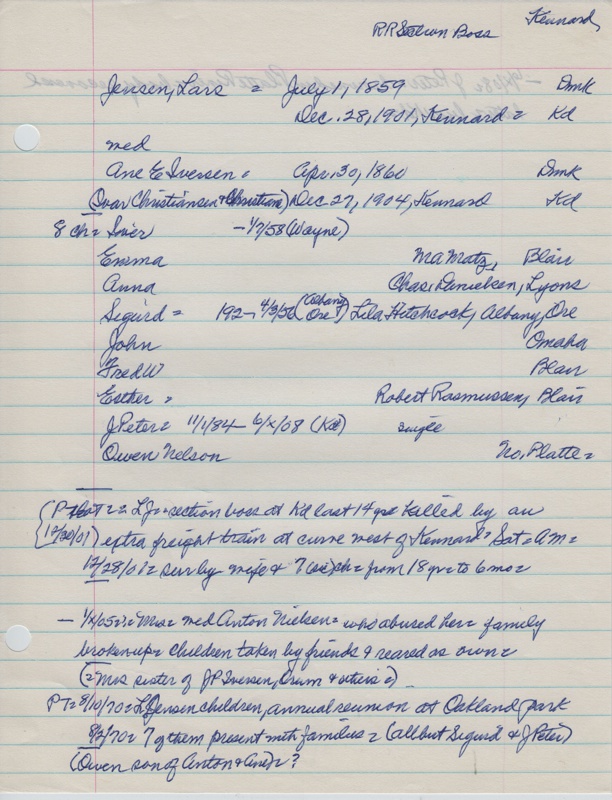 Kennard,
RR Section Boss
Jensen, Lars = July 1, 1859 Dmk
Dec. 28, 1901, Kennard = Kd
med
Ane E Iversen = Apr. 30, 1860 Dmk
(Ivar Christiansen & Christiane) Dec 27, 1904, Kennard Kd
8 ch = Iver - 1/7/58 (Wayne)
Emma Ma Matz, Blair
Anna Chas. Danielsen, Lyons
Sigurd = 192- 4/3/56 (Albany Ore) Lila Hitchcock, Albany, Ore
John Omaha
Fred W Blair
Esther = Robert Rasmussen, Blair
J Peter = 11/1/84 - 6/x/08 (Kd) single
Owen Nelson No. Platte =
(P = LJ = section boss at Kd last 14 yrs killed by an
12/30/01) extra freight train at curve west of Kennard = Sat = AM =
12/28/01 = surv by wife & 7 ch = from 18 yrs to 6 mo =
- 1/x/05 = Mrs = med Anton Nielsen = who abused her = family
broken up = children taken by friends & reared as own =
(= Mrs sister of JP Iversen, Orum & others =)
PT = 8/10/70 = LJensen children, annual reunion at Oakland park
8/2/70 = 7 of them present with families = (all but Sigurd & J Peter)
(Owen son of Anton & Ane) = ?